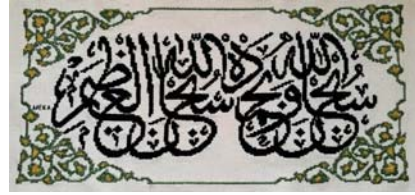 سبحان الله وبحمده سبحان الله العظيم
AREKA